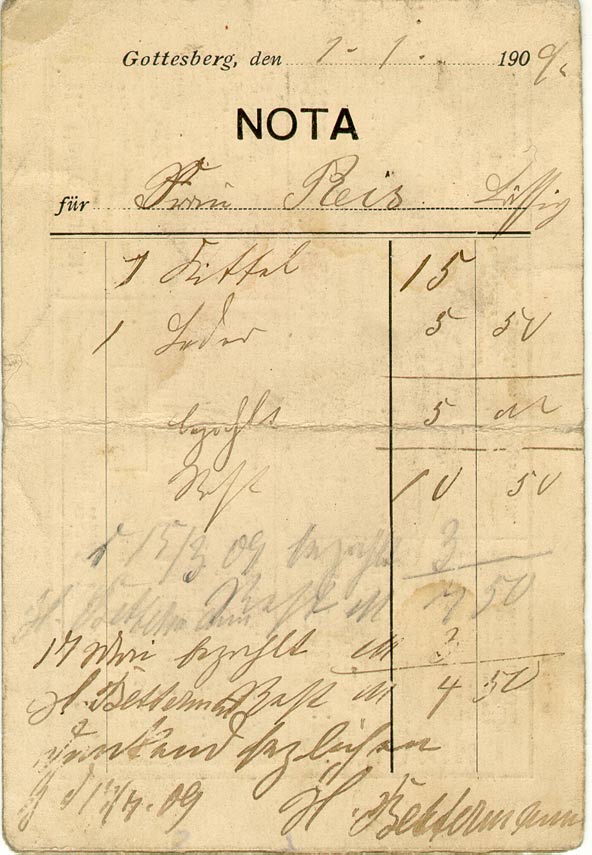 Gottesberg, den 7-1. 1909.
NOTA
für Frau Reis
1 Kittel 15
1 Leder 5 50
bezahlt 5
Rest 10 50
d 15/3 09 bezahlt 3
H. Bettermann Rest M 7 50
17 Mai bezahlt M 3
H. Betterman Rest M 4 50
dankend beglichen
09 H. Bettermann